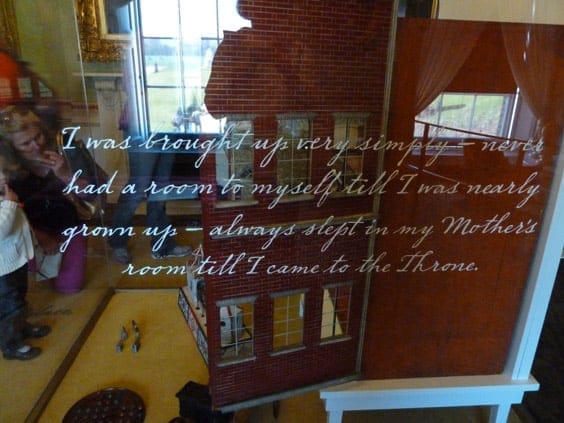 I was brought up very simply – never
had a room to myself till I was nearly
grown up – always slept in my Mother's
room till I came to the Throne.